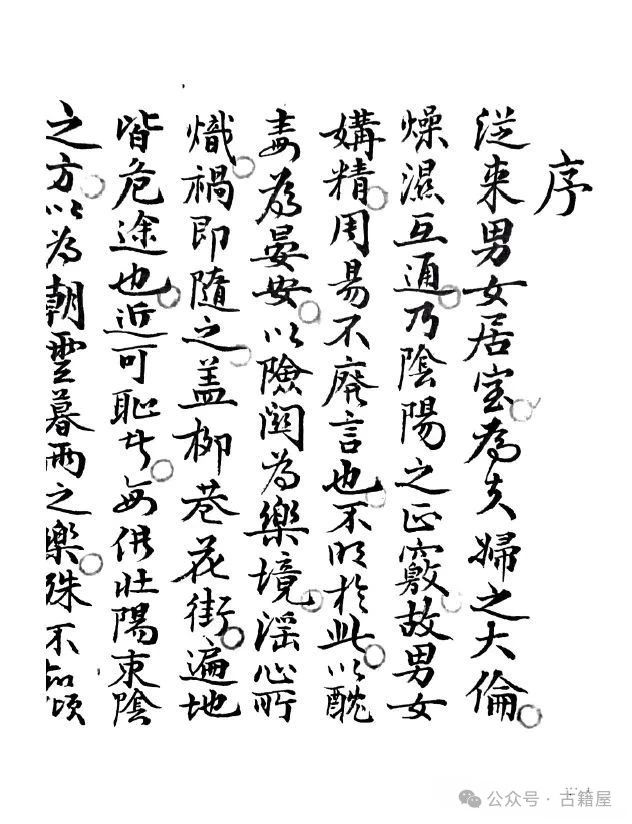 序
從来男女居室為夫婦之大倫
燥濕互通乃陰陽之正竅故男女
媾精周易不廢言也不明於此以酖
毒為晏安以險為樂境滛心所
熾禍即隨之盖柳巷花街遍地
皆危途也近可恥者每供壯陽束陰
之方以為朝雲暮雨之樂殊不知頃
公众号·古籍屋